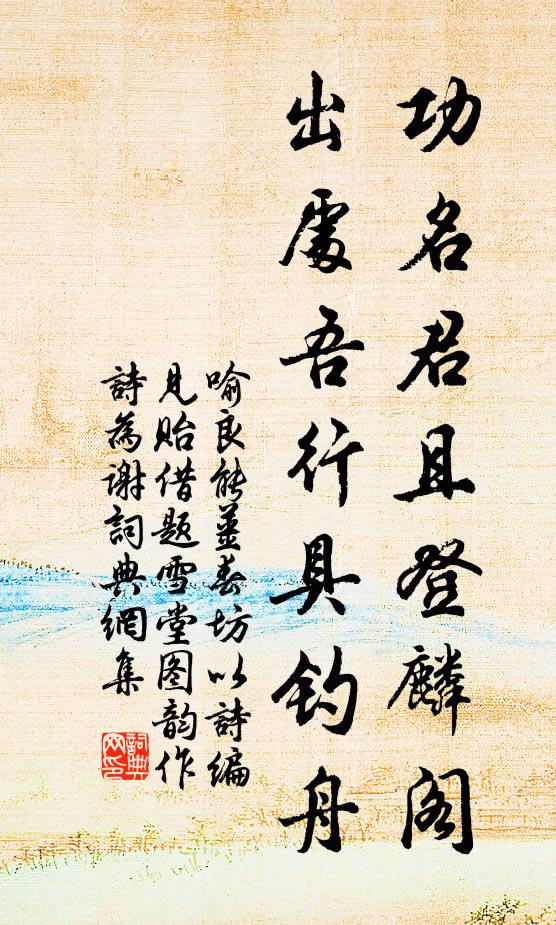 功名君且登麟阁
出處吾行具钓舟
喻良能薑春坊以詩编
見贻借题雪堂图韵作
詩為谢詞典網集
詞典
网印